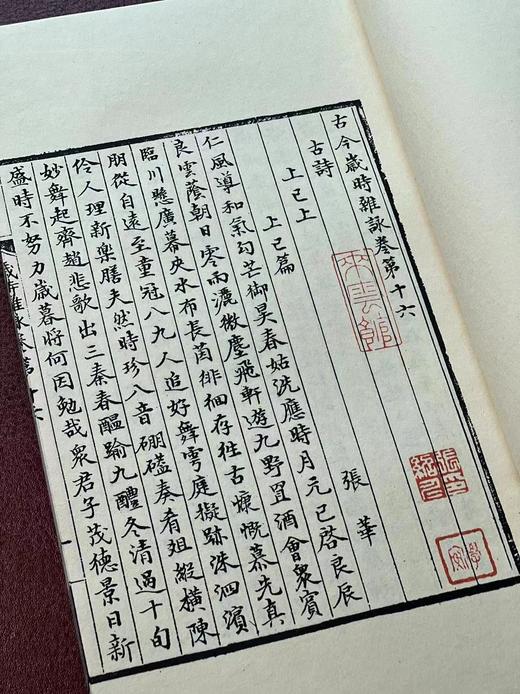 古今歲時雜詠卷第十六
古詩
上巳上
上巳篇 張華
仁風導和氣勾芒御昊春姑洗應時月元巳啓良辰
良雲蔭朝日零雨灑微塵飛軒遊九野置酒會衆賓
臨川懸廣幕夾水布長茵徘徊存往古慷慨慕先真
朋從自遠至童冠八九人追好舞雩庭擬跡洙泗濱
伶人理新樂膳夫然時珍八音硼磕奏肴俎縱橫陳
妙舞起齊趙悲歌出三秦春醖踰九醴冬清過十旬
盛時不努力歲暮將何因勉哉衆君子茂德景日新
歲時雜詠卷第十六
學安